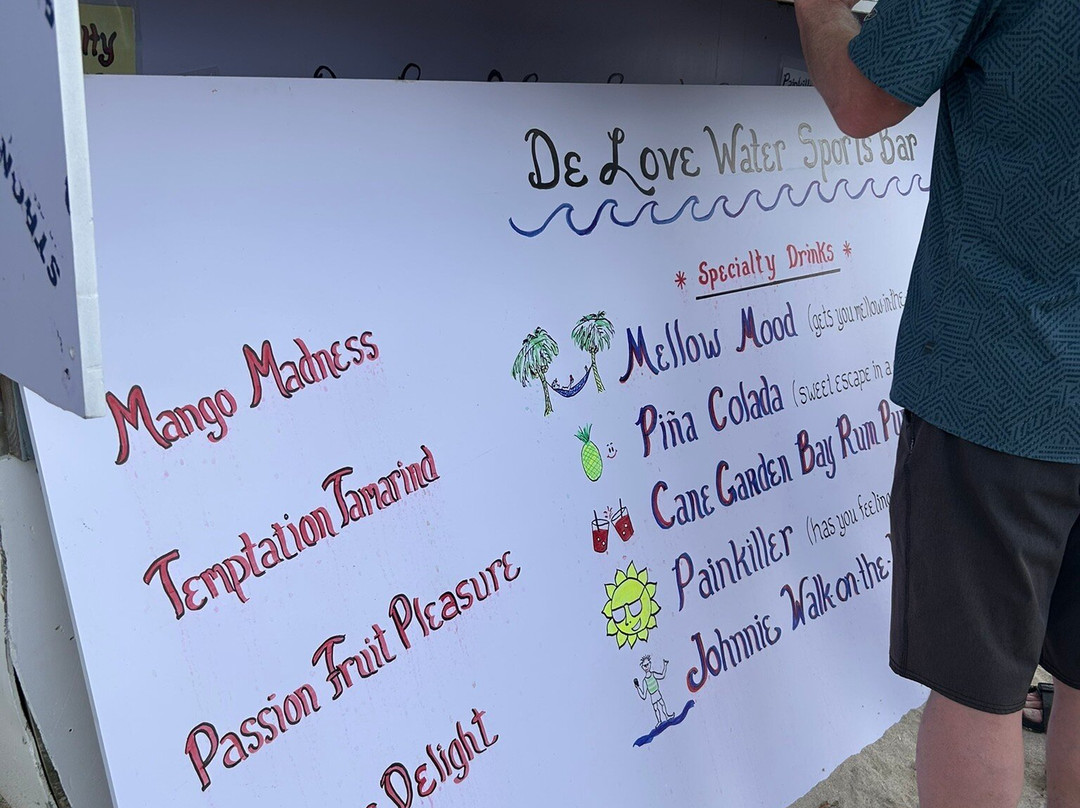 De Love Water Sports Bar
* Specialty Drinks *
Mango Madness
Temptation Tamarind
Passion Fruit Pleasure
Delight
Mellow Mood (gets you mellow in the
Piña Colada (sweet escape in a
Cane Garden Bay Rum
Painkiller (has you feeling
Johnnie Walk-on-the-